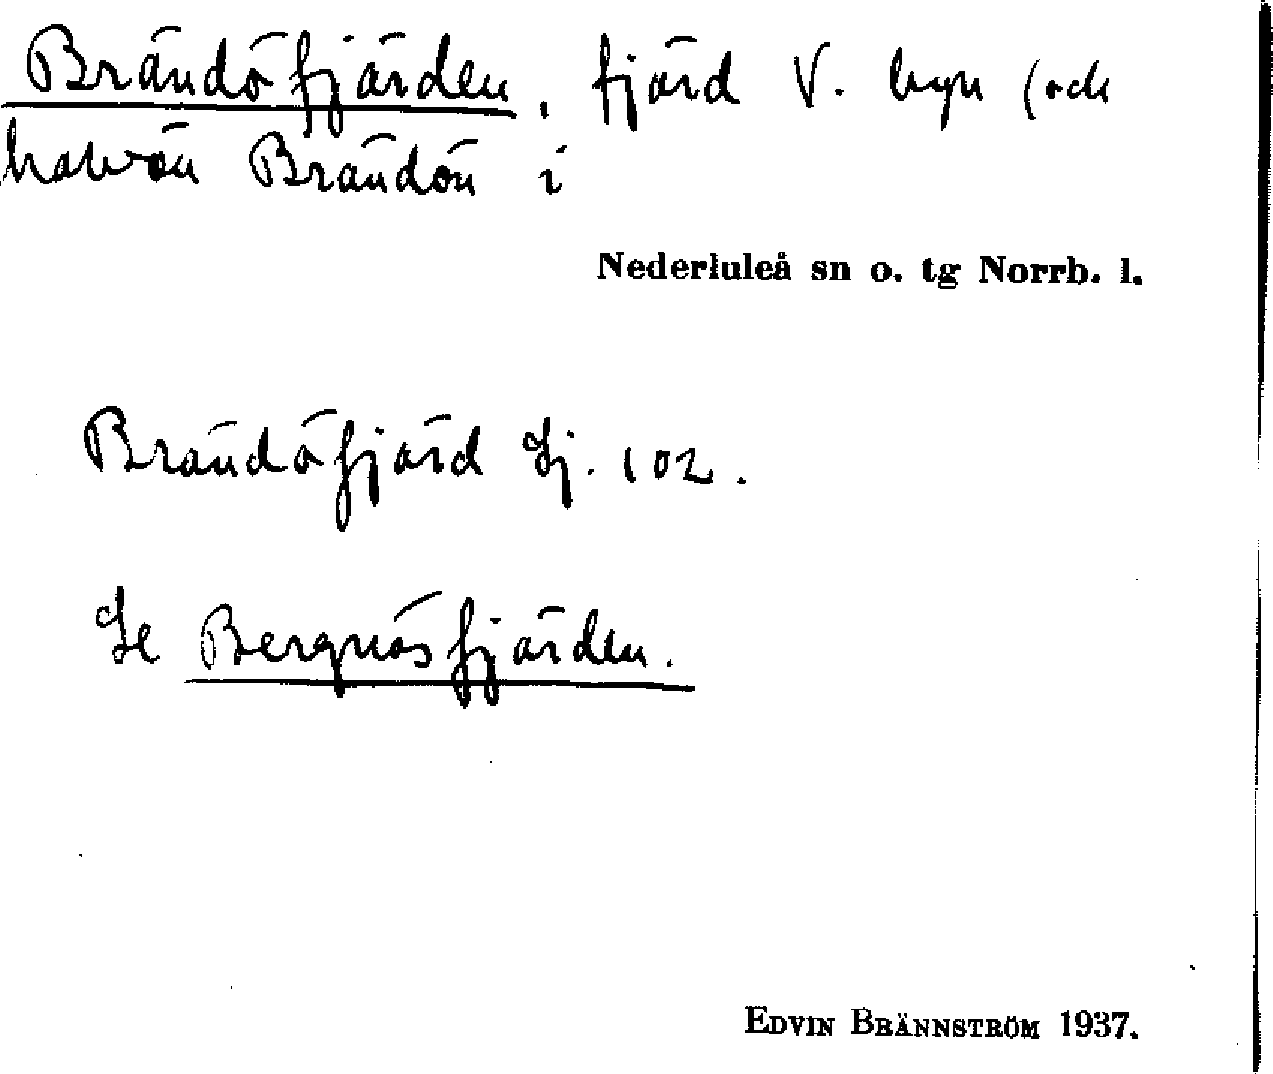 Brändöfjärden, fjärd V. byn (och
halvön Brändön i
Nederluleå sn o. tg Norrb. l.
Brändöfjärd Sj. 102.
Se Bergnäsfjärden.
EDVIN BRÄNNSTRÖM 1937.